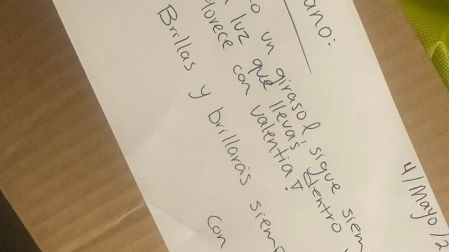 4/Mayo/2
ano:
o un girasol sigue siem
luz que llevas dentro
lorece con valentia!
Brillas y brillarás siem
Con